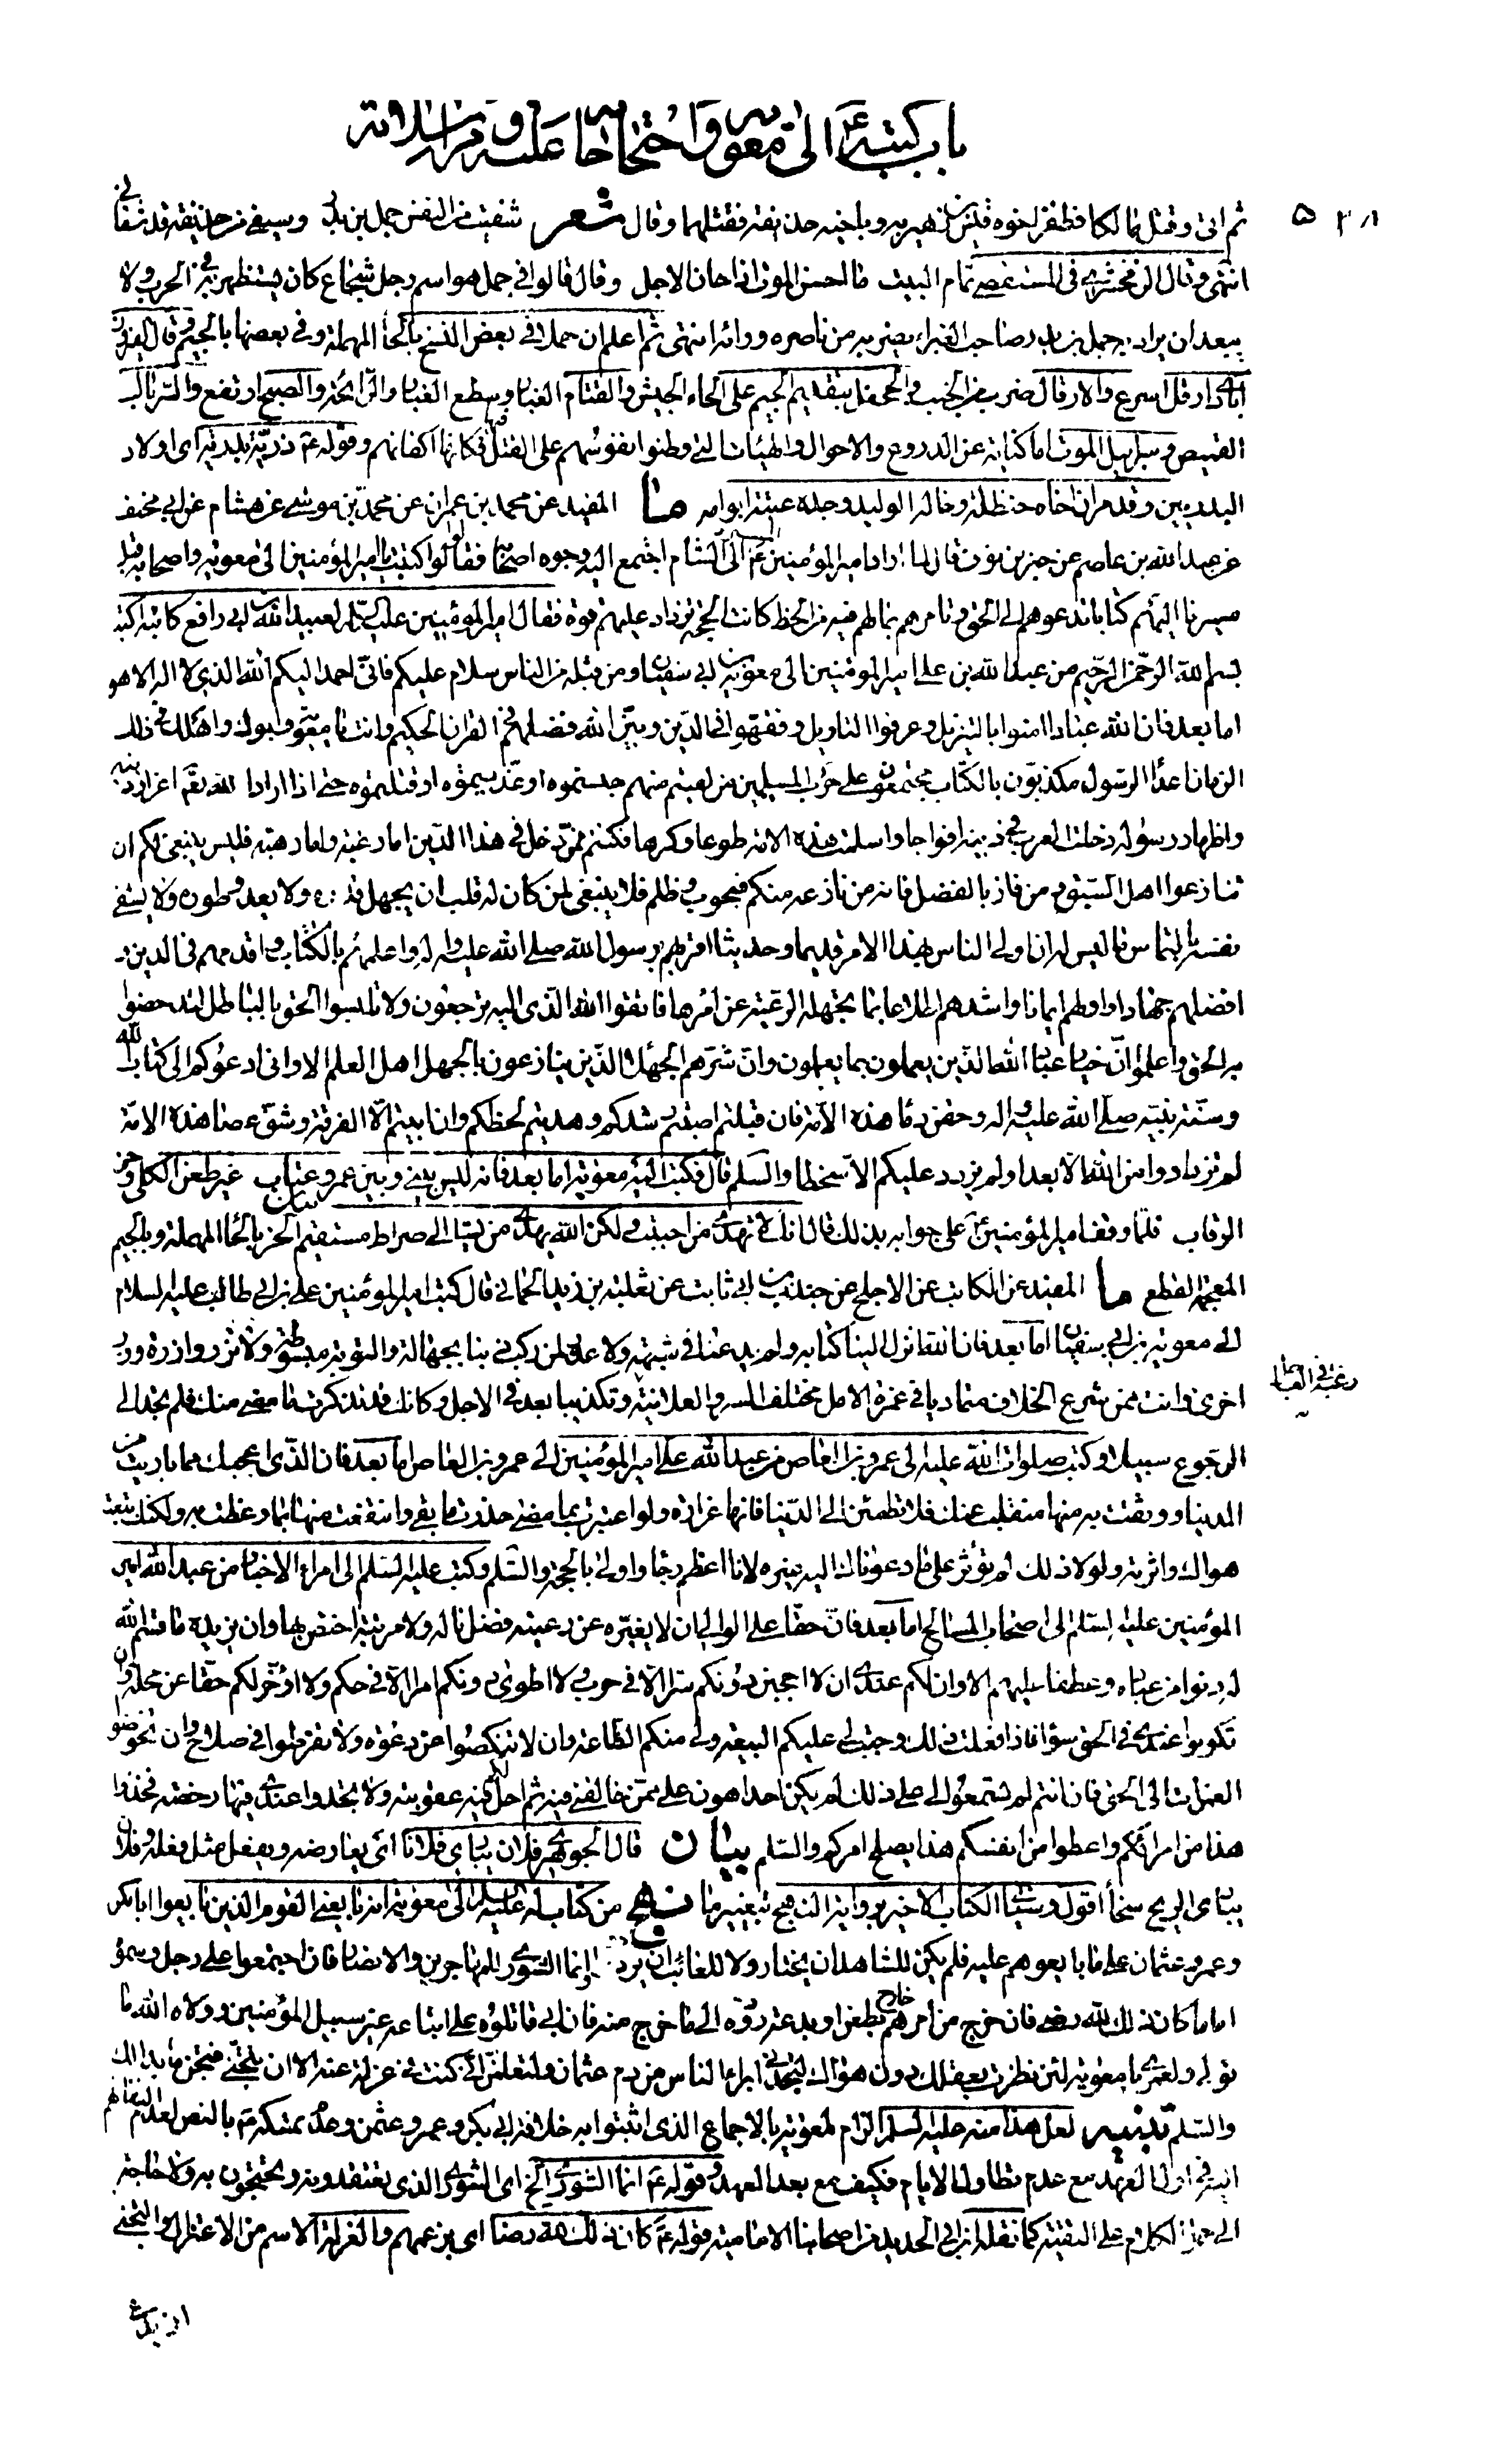 باب كتبه ع الى معوية واحتجاجاته عليه ومراسلاته
ثم اتى وقتل مالكا فظفر اخوه قيس بن زهير به وباخيه حذيفة فقتلهما وقال شعر شفيت من النفس حمل بن بدر وسيفى من حذيفة قد شفانى
انتهى وقال الزمخشرى فى المستقصى تمام البيت ما احسن الموت اذا حان الاجل وقال قالوا فى حمل هو اسم رجل شجاع كان يستظهر به فى الحرب ولا
يبعد ان يراد به حمل بن بدر صاحب الغبراء يضرب به من ناصره ورائه انتهى ثم اعلم ان حملا فى بعض النسخ بالحاء المهملة وفى بعضها بالجيم وقال الفيروز
ابادى ارقل اسرع والارقال ضرب من الخبب والجحفل بتقديم الجيم على الحاء الجيش والقتام الغبار وسطع الغبار والرائحة والصبح ارتفع والسربال
القميص وسرابيل الموت اما كناية عن الدروع والاحوال والهيئات التى وطنوا نفوسهم على القتل فيها فكانها اكفانهم وقوله ع ذرية بدرية اى اولاد
البدريين وقد مر ان اخاه حنظلة وخاله الوليد وجده عتبة ابو امه ما المفيد عن محمد بن عمران عن محمد بن موسى عن هشام عن ابى مخنف
عن عبد الله بن عاصم عن جبر بن نوف قال لما اراد امير المؤمنين ع المسير الى الشام اجتمع اليه وجوه اصحابه فقالوا لو كتبت يا امير المؤمنين الى معوية واصحابه قبل
مسيرنا اليهم كتابا تدعوهم الى الحق وتامرهم بما لهم فيه من الحظ كانت الحجة تزداد عليهم قوة فقال امير المؤمنين عليه السلم لعبيد الله بن ابى رافع كاتبه اكتب
بسم الله الرحمن الرحيم من عبد الله بن على امير المؤمنين الى معوية بن ابى سفيان ومن قبله من الناس سلام عليكم فانى احمد اليكم الله الذى لا اله الا هو
اما بعد فان لله عبادا امنوا بالتنزيل وعرفوا التاويل وفقهوا فى الدين وبين الله فضلهم فى القران الحكيم وانت يا معوية وابوك واهلك فى ذلك
الزمان اعداء الرسول مكذبون بالكتاب مجتمعون على حرب المسلمين من لقيتم منهم حبستموه او عذبتموه او قتلتموه حتى اذا اراد الله تعم اعزاز دينه
واظهار رسوله دخلت العرب فى دينه افواجا واسلمت هذه الامة طوعا وكرها فكنتم ممن دخل فى هذا الدين اما رغبة واما رهبة فليس ينبغى لكم ان
تنازعوا اهل السبق ومن فاز بالفضل فانه من نازعه منكم فبحوب وظلم فلا ينبغى لمن كان له قلب ان يجهل قدره ولا يعدو طوره ولا يشقى
نفسه بالتماس ما ليس له ان اولى الناس بهذا الامر قديما وحديثا اقربهم برسول الله صلى الله عليه واله واعلمهم بالكتاب واقدمهم فى الدين و
افضلهم جهادا واولهم ايمانا واشدهم اطلاعا بما تجهله الرعية عن امرها فاتقوا الله الذى اليه ترجعون ولا تلبسوا الحق بالباطل لتدحضوا
به الحق واعلموا ان خيار عباد الله الذين يعملون بما يعلمون وان شرهم الجهلاء الذين ينازعون بالجهل اهل العلم الا وانى ادعوكم الى كتاب الله
وسنة نبيه صلى الله عليه واله وحقن دماء هذه الامة فان قبلتم اصبتم رشدكم وهديتم لحظكم وان ابيتم الا الفرقة وشق عصا هذه الامة
لم تزدادوا من الله الا بعدا ولم يزدد عليكم الا سخطا والسلم قال فكتب اليه معوية اما بعد فانه ليس بينى وبين عمرو عتاب غير طعن الكلى وحز
الرقاب فلما وقف امير المؤمنين ع على جوابه بذلك قال انك لا تهدى من احببت ولكن الله يهدى من يشاء الى صراط مستقيم بيان الحز بالحاء المهملة وبالجيم
المعجمة القطع ما المفيد عن الكاتب عن الاجلح عن حبيب بن ابى ثابت عن ثعلبة بن زيد الحمانى قال كتب امير المؤمنين على بن ابى طالب عليه السلام
الى معوية بن ابى سفيان اما بعد فان الله انزل الينا كتابه ولم يدعنا فى شبهة ولا عذر لمن ركب ذنبا بجهالة والتوبة مبسوطة ولا تزر وازرة وزر
اخرى وانت ممن شرع الخلاف متماديا فى غمرة الامل مختلف السر والعلانية رغبة فى العاجل وتكذيبا بعد فى الاجل وكانك قد تذكرت ما مضى منك فلم تجد الى
الرجوع سبيلا وكتب صلوات الله عليه الى عمرو بن العاص من عبد الله على امير المؤمنين الى عمرو بن العاص اما بعد فان الذى اعجبك مما باريت من
الدنيا ووثقت به منها منقلب عنك فلا تطمئن الى الدنيا فانها غرارة ولو اعتبرت بما مضى حذرت ما بقى وانتفعت منها بما وعظت به ولكنك تبعت
هواك واثرته ولولا ذلك لم تؤثر على ما دعوناك اليه غيره لانا اعظم رجاء واولى بالحجة والسلم وكتب عليه السلم الى امراء الاجناد من عبد الله امير
المؤمنين عليه السلم الى اصحاب المسالح اما بعد فان حقا على الوالى ان لا يغيره عن رعيته فضل ناله ولا مرتبة اختص بها وان يزيده ما قسم الله
له دنوا من عباده وعطفا عليهم الا وان لكم عندى ان لا احجبن دونكم سرا الا فى حرب ولا اطوى دونكم امرا الا فى حكم ولا اؤخر لكم حقا عن محله وان
تكونوا عندى فى الحق سواء فاذا فعلت ذلك وجبت لى عليكم البيعة ولى منكم الطاعة وان لا تنكصوا عن دعوة ولا تفرطوا فى صلاح وان تخوضوا
الغمرات الى الحق فان انتم لم تسمعوا لى على ذلك لم يكن احد اهون على ممن خالفنى فيه ثم احل لكم فيه عقوبته ولا تجدوا عندى فيها رخصة فخذوا
هذا من امرائكم واعطوا من انفسكم هذا يصلح امركم والسلم بيان قال الجوهرى فلان يبارى فلانا اى يعارضه ويفعل مثل فعله وفلان
يبارى الريح سخاء اقول وسياتى الكتاب الاخير برواية النهج بتغيير ما نهج من كتاب له عليه السلم الى معوية انه بايعنى القوم الذين بايعوا ابا بكر
وعمر وعثمان على ما بايعوهم عليه فلم يكن للشاهد ان يختار ولا للغائب ان يرد وانما الشورى للمهاجرين والانصار فان اجتمعوا على رجل وسموه
اماما كان ذلك لله رضى فان خرج من امرهم خارج بطعن او بدعة ردوه الى ما خرج منه فان ابى قاتلوه على اتباعه غير سبيل المؤمنين وولاه الله ما
تولى ولعمرى يا معوية لئن نظرت بعقلك دون هواك لتجدنى ابرء الناس من دم عثمان ولتعلمن انى كنت فى عزلة عنه الا ان تتجنى فتجن ما بدا لك
والسلم تنبيه لعل هذا منه عليه السلم الزام لمعوية بالاجماع الذى اثبتوا به خلافة ابى بكر وعمر وعثمن وعدم تمسكه ع بالنص لعدم التفاتهم
اليه فى اول العهد مع عدم تطاول الايام فكيف مع بعد العهد وقوله ع انما الشورى الخ اى الشورى الذى تعتقدونه وتحتجون به ولا حاجة
الى حمل الكلام على التقية كما نقله ابن ابى الحديد من اصحابنا الامامية قوله ع كان ذلك لله رضا اى بزعمهم والعزلة الاسم من الاعتزال والتجنى